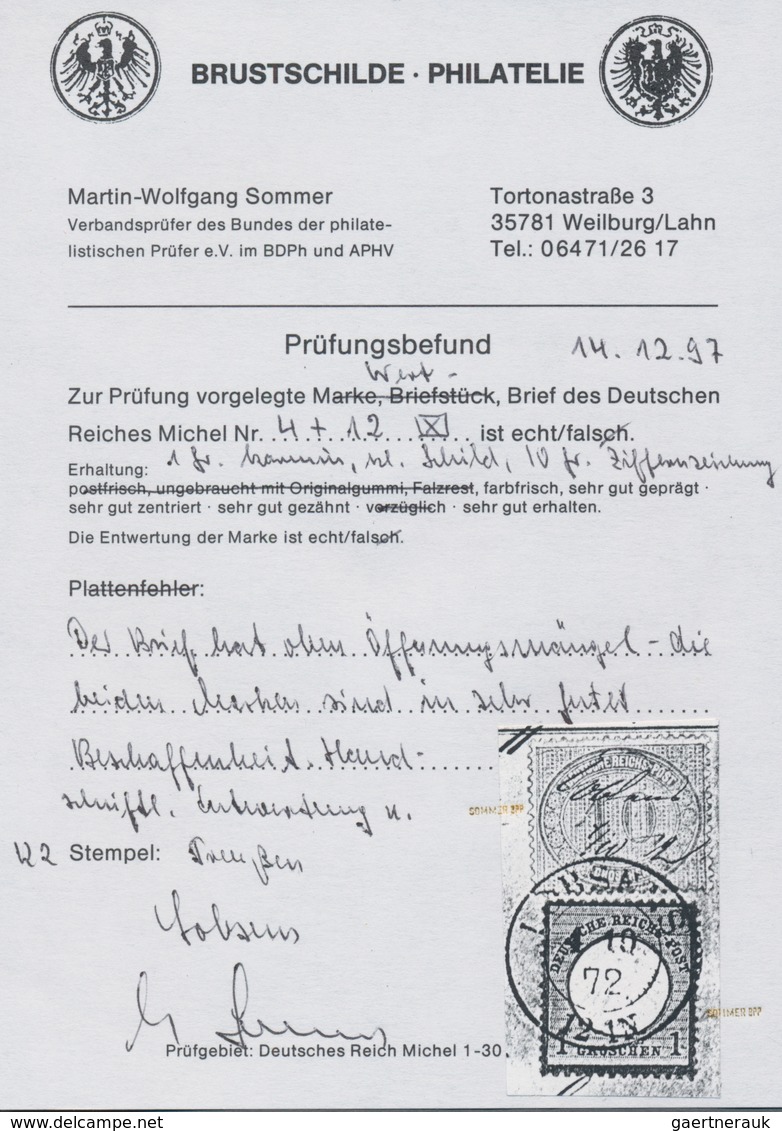 BRUSTSCHILDE · PHILATELIE
Martin-Wolfgang Sommer
Verbandsprüfer des Bundes der philate-
listischen Prüfer e.V. im BDPh und APHV
Tortonastraße 3
35781 Weilburg/Lahn
Tel.: 06471/26 17
Prüfungsbefund 14.12.97
Wert-
Zur Prüfung vorgelegte Marke, Briefstück, Brief des Deutschen
Reiches Michel Nr. 4 + 12 ist echt/falsch.
Erhaltung: 1 Gr. karmin, kl. Schild, 10 Gr. Ziffernzeichnung
postfrisch, ungebraucht mit Originalgummi, Falzrest, farbfrisch, sehr gut geprägt ·
sehr gut zentriert · sehr gut gezähnt · vorzüglich · sehr gut erhalten.
Die Entwertung der Marke ist echt/falsch.
Plattenfehler:
Der Brief hat oben Öffnungsmängel - die
beiden Marken sind in sehr guter
Beschaffenheit. Hand-
schriftl. Entwertung u.
K2 Stempel: Preußen
Lobsens
Prüfgebiet: Deutsches Reich Michel 1-30
SOMMER BPP
10
LOBSENS
DEUTSCHE REICHS-POST
19
72
12-1N
1 GROSCHEN 1
SOMMER BPP
gaertnerauk